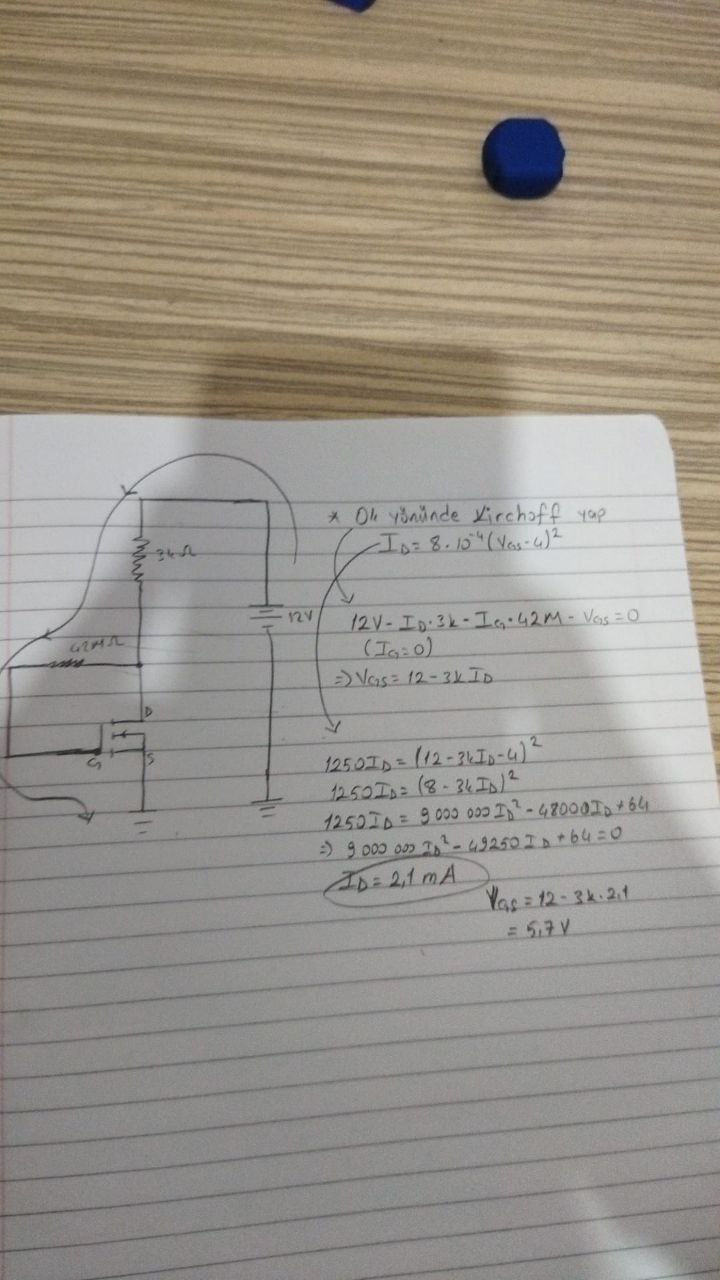 3kΩ
12V
42MΩ
D
G
S
* Ok yönünde Kirchoff yap
I_D = 8.10⁻⁴(V_GS-4)²
12V - I_D.3k - I_G.42M - V_GS = 0
(I_G=0)
⇒ V_GS = 12 - 3k I_D
1250I_D = (12-3kI_D-4)²
1250I_D = (8-3kI_D)²
1250I_D = 9 000 000 I_D² - 48000I_D + 64
⇒ 9 000 000 I_D² - 49250 I_D + 64 = 0
I_D = 2,1 mA
V_GS = 12 - 3k.2,1
= 5,7 V